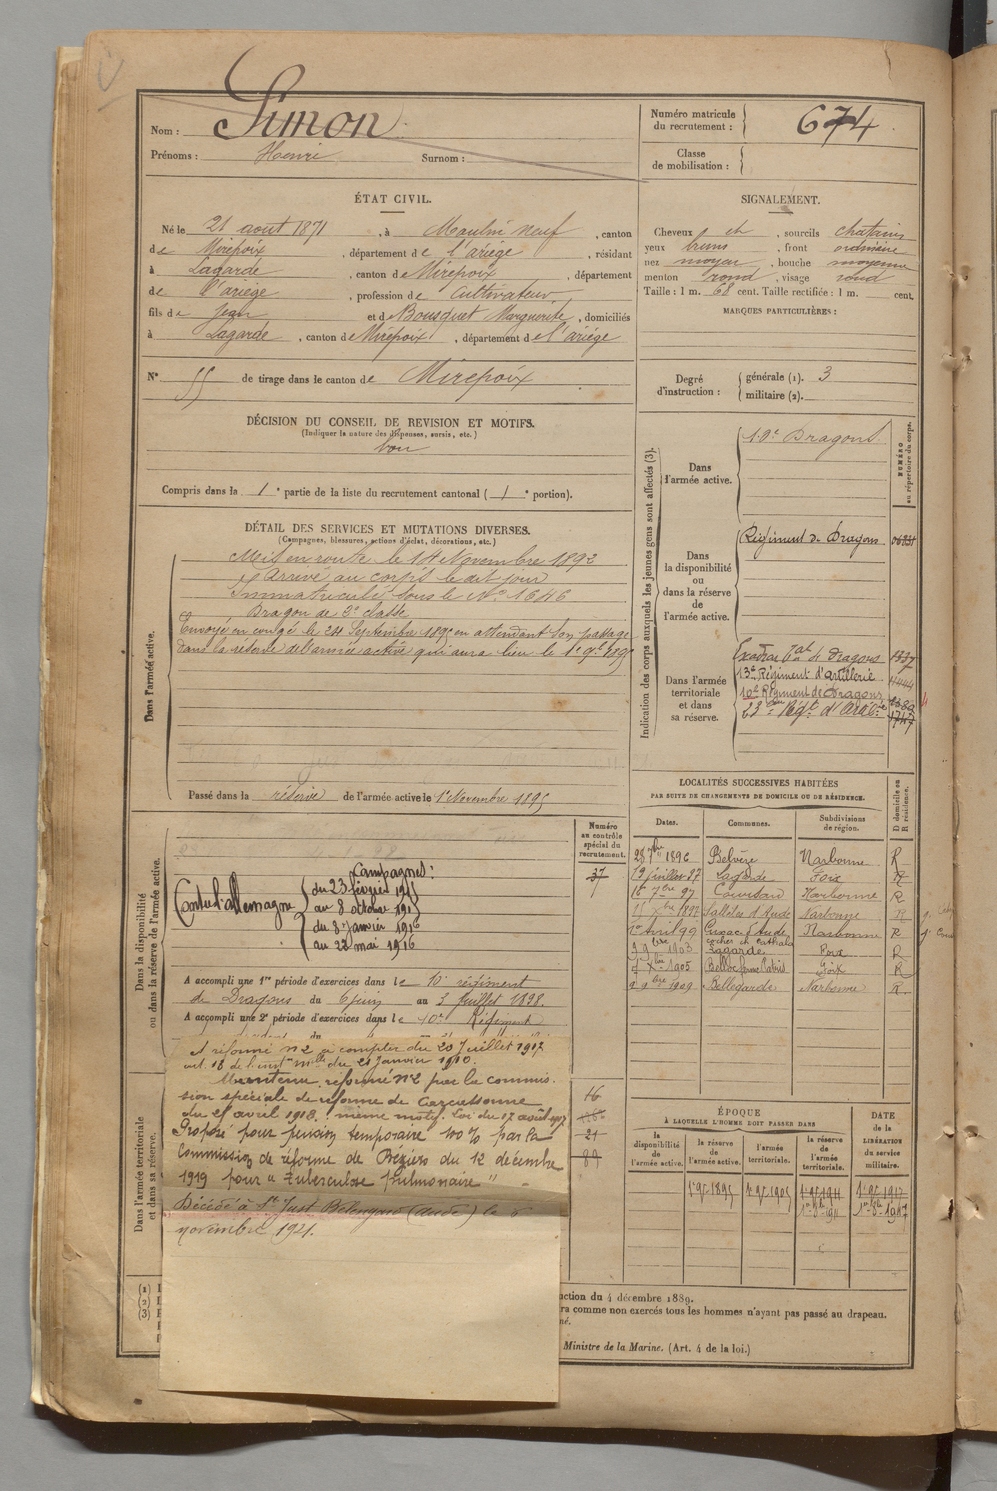 Nom : Simon
Prénoms : Henri Surnom :
Numéro matricule du recrutement : 674
Classe de mobilisation :
ÉTAT CIVIL.
Né le 21 aout 1871, à Moulin neuf, canton
de Mirepoix, département de l'ariége, résidant
à Lagarde, canton de Mirepoix, département
de l'ariége, profession de Cultivateur
fils de Jean et de Bousquet Marguerite, domiciliés
à Lagarde, canton de Mirepoix, département de l'ariége
N° 55 de tirage dans le canton de Mirepoix
SIGNALEMENT.
Cheveux et, sourcils chatains
yeux bruns, front ordinaire
nez moyen, bouche moyenne
menton rond, visage rond
Taille : 1 m. 68 cent. Taille rectifiée : 1 m. cent.
MARQUES PARTICULIÈRES :
Degré d'instruction : générale (1). 3
militaire (2).
DÉCISION DU CONSEIL DE REVISION ET MOTIFS.
(Indiquer la nature des dispenses, sursis, etc.)
bon
Compris dans la 1e partie de la liste du recrutement cantonal (1e portion).
DÉTAIL DES SERVICES ET MUTATIONS DIVERSES.
(Campagnes, blessures, actions d'éclat, décorations, etc.)
Dans l'armée active.
Mis en route le 14 Novembre 1892
Arrivé au corps le dit jour
Immatriculé sous le N° 1646
Dragon de 2e classe
Envoyé en congé le 24 Septembre 1895 en attendant son passage
dans la réserve de l'armée active qui aura lieu le 1er 9bre 1895
Passé dans la réserve de l'armée active le 1er Novembre 1895
Indication des corps auxquels les jeunes gens sont affectés (3).
NUMÉRO au répertoire du corps.
Dans l'armée active.
10e Dragons
Dans la disponibilité ou dans la réserve de l'armée active.
Régiment de Dragons
Dans l'armée territoriale et dans sa réserve.
de Dragons 1337
13e Régiment d'artillerie
10e Régiment de Dragons
23e Régt d'Artie
LOCALITÉS SUCCESSIVES HABITÉES
PAR SUITE DE CHANGEMENTS DE DOMICILE OU DE RÉSIDENCE.
Dates. Communes. Subdivisions de région. D domicile ou R résidence.
28 7bre 1896 Belvèze Narbonne R
19 juillet 97 Lagarde Foix R
16 7bre 97 Coursan Narbonne R
1897 Sallèles d'Aude Narbonne R
1er Avril 99 Cuxac d'Aude Narbonne R
1903 Lagarde Foix R
1905 Belloc Foix R
1909 Bellegarde Narbonne R
Dans la disponibilité ou dans la réserve de l'armée active.
Numéro au contrôle spécial du recrutement.
37
Campagnes :
Contre l'allemagne
du 23 février 1915
au 8 octobre 1915
du 8 janvier 1916
au 22 mai 1916
A accompli une 1re période d'exercices dans le 10e régiment
de Dragons du 6 juin au 3 juillet 1898.
A accompli une 2e période d'exercices dans le 10e Régiment
Dans l'armée territoriale et dans sa réserve.
réformé n°2 à compter du 20 Juillet 1917
art. 18 de l'instn mlle du 21 janvier 1910.
Maintenu réformé n°2 par la commis.
sion spéciale de réforme de Carcassonne
du 25 avril 1918. même motif. Loi du 17 août 1917
Proposé pour pension temporaire 100 % par la
Commission de réforme de Béziers du 12 décembre
1919 pour "Tuberculose pulmonaire"
Décédé à St Just Belengard (Aude) le 6
novembre 1921.
16
21
89
ÉPOQUE
À LAQUELLE L'HOMME DOIT PASSER DANS
la disponibilité de l'armée active.
la réserve de l'armée active.
l'armée territoriale.
la réserve de l'armée territoriale.
DATE de la LIBÉRATION du service militaire.
1er 9bre 1895 1er 9bre 1905 1er 9bre 1911 1er 9bre 1917
(1)
(2)
(3)
uction du 4 décembre 1889.
ra comme non exercés tous les hommes n'ayant pas passé au drapeau.
né.
Ministre de la Marine. (Art. 4 de la loi.)